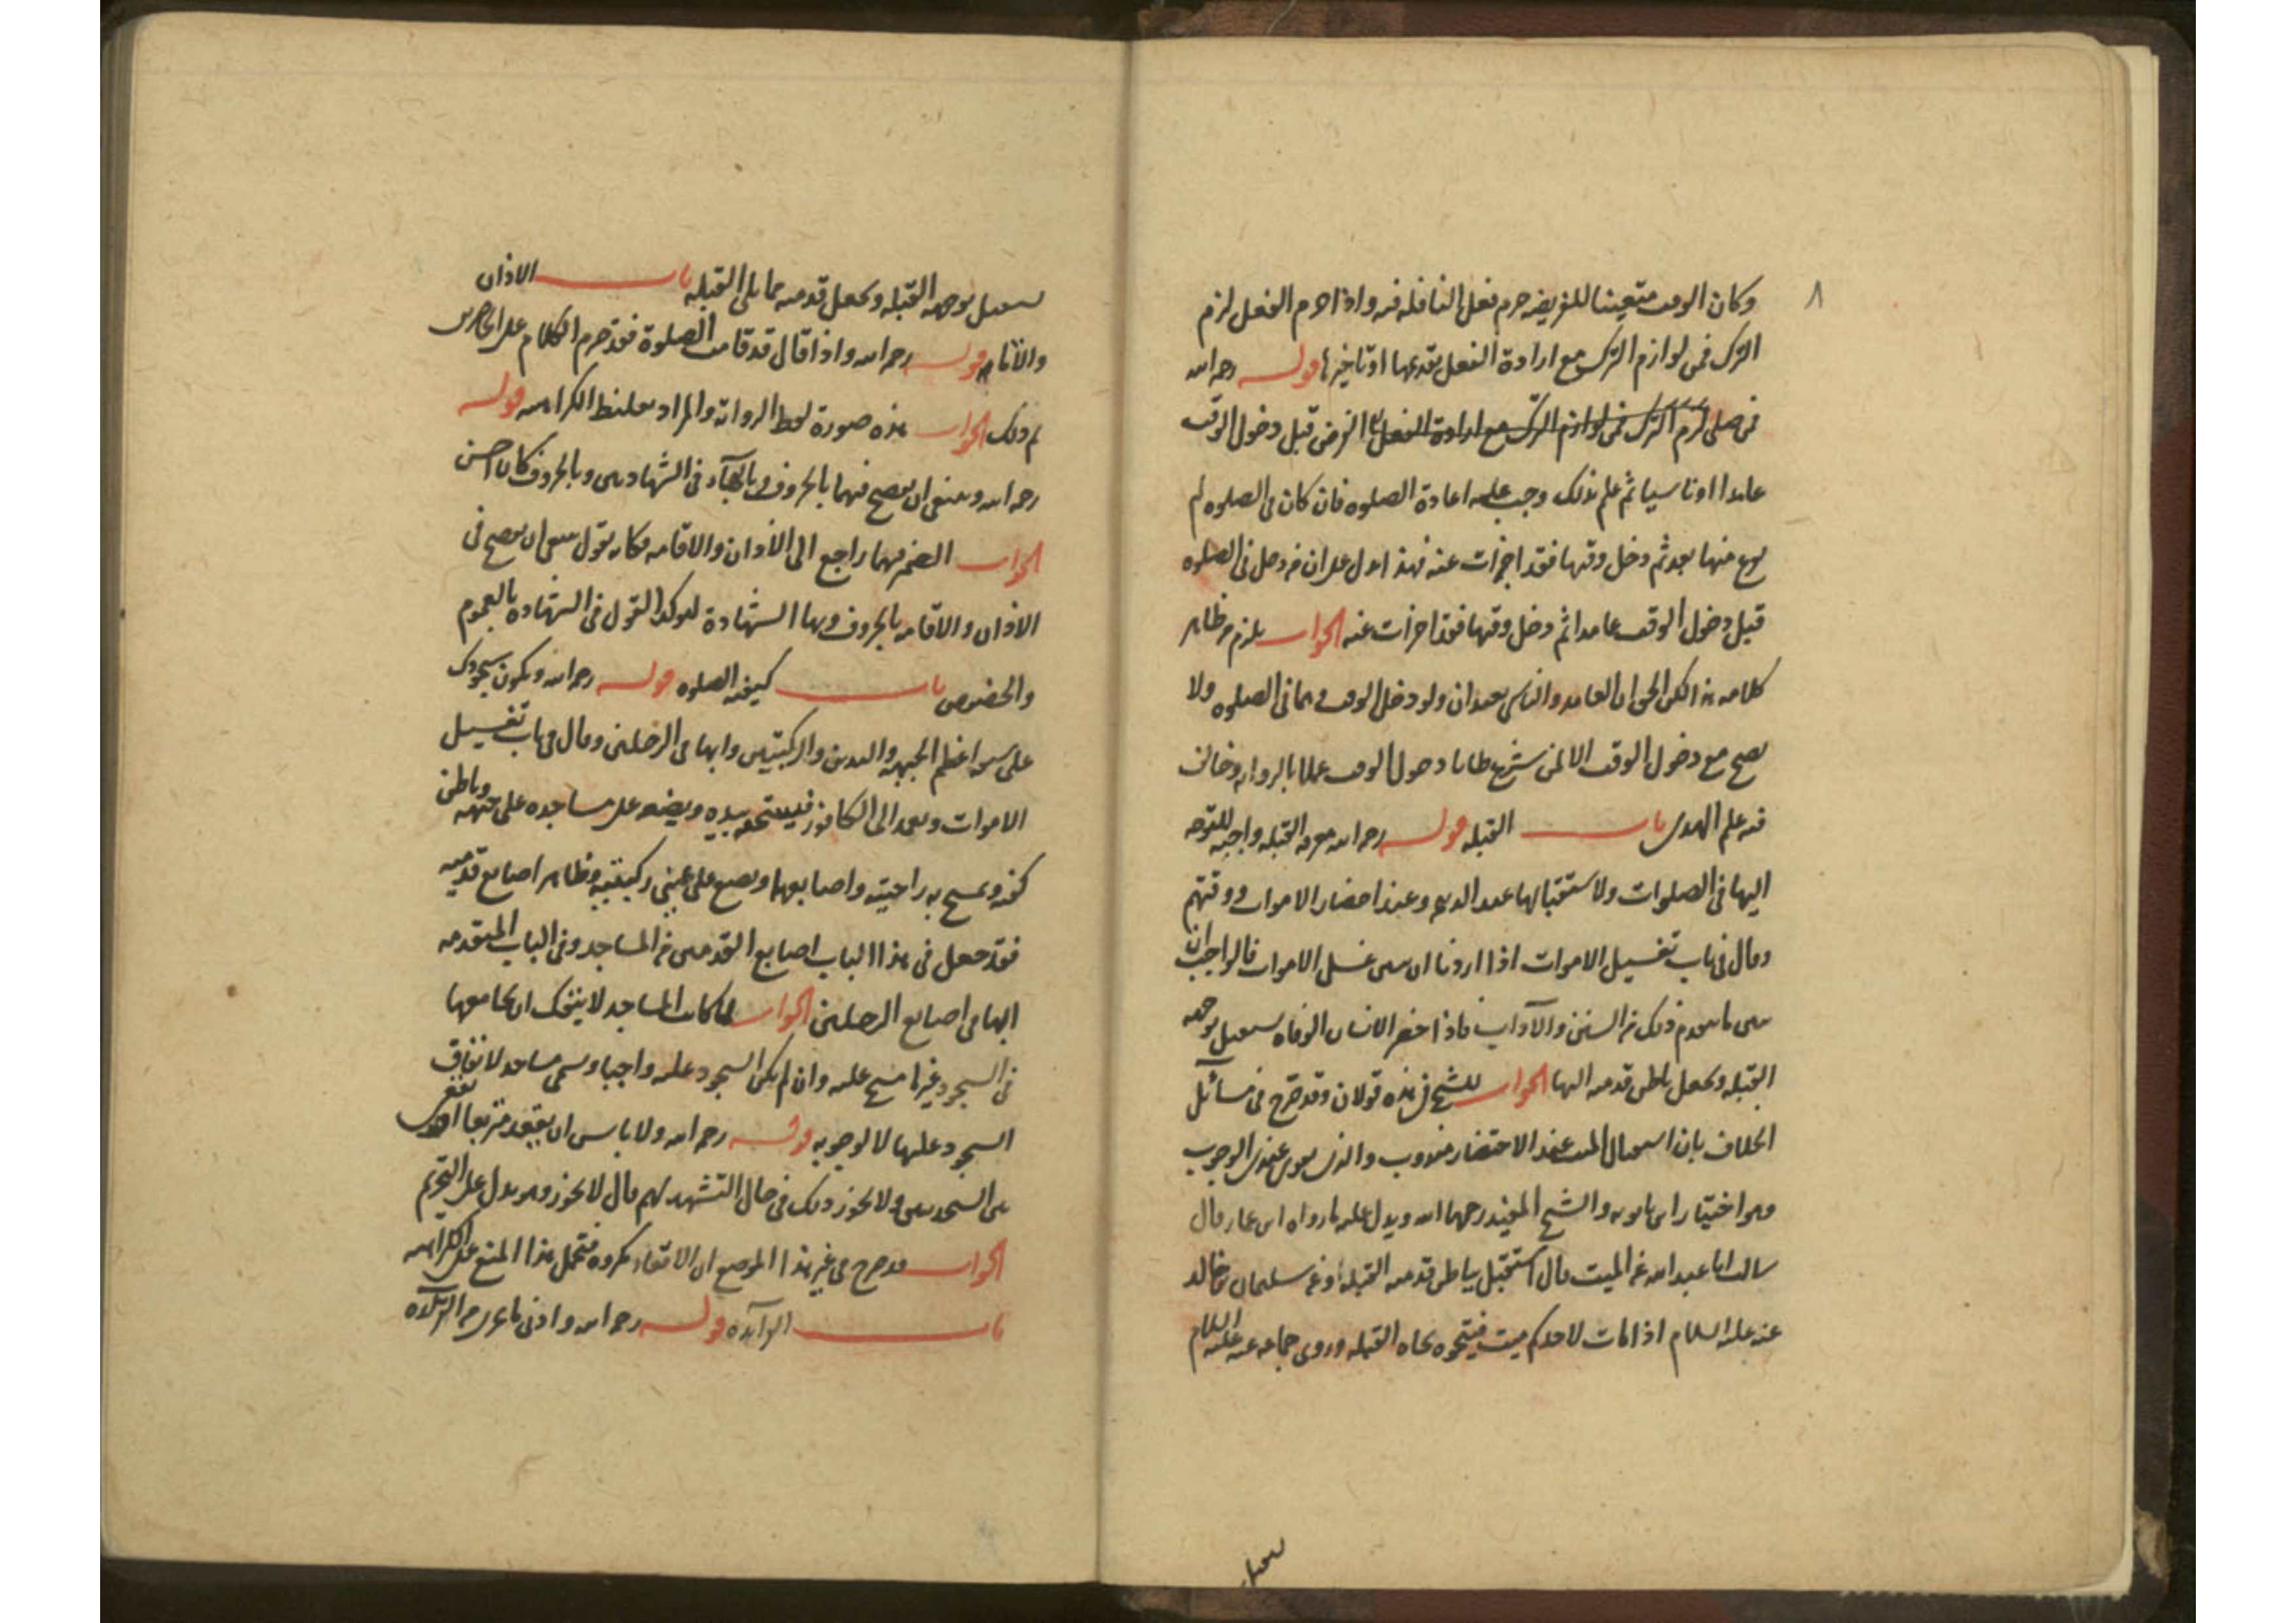 ٨
وكان الوقت متعينا للفريضه حرم فعل النافله فيه واذا حرم الفعل لزم
الترك فمن لوازم الترك مع ارادة الفعل تقديمها او تاخيرها قوله رحمه الله
فمن صلى لزم الترك فمن لوازم الترك مع ارادة الفعل الفرض قبل دخول الوقت
عامدا او ناسيا ثم علم بذلك وجب عليه اعادة الصلوه فان كان فى الصلوه لم
يفرغ منها بعد ثم دخل وقتها فقد اجزات عنه فهذا يدل على ان من دخل فى الصلوه
قبل دخول الوقت عامدا ثم دخل وقتها فقد اجزات عنه الجواب يلزم من ظاهر
كلامه هذا لكن الحق ان العامد والناسى يعيدان ولو دخل الوقت وهما فى الصلوه ولا
يصح مع دخول الوقت الا لمن شرع ظانا دخول الوقت عملا بالروايه وخالف
فيه علم الهدى باب القبله قوله رحمه الله معرفه القبله واجبه للتوجه
اليها فى الصلوات ولاستقبالها عند الذبح وعند احضار الاموات ودفنهم
وقال فى باب تغسيل الاموات اذا اردنا ان نبين غسل الاموات فالواجب ان
نبين ما يتقدم ذلك من السنن والآداب فاذا حضر الانسان الوفاه يستقبل بوجهه
القبله ويجعل باطن قدميه اليها الجواب للشيخ فى هذه قولان وقد صرح فى مسائل
الخلاف بان استقبال الميت عند الاحتضار مندوب والذى يقوى عندى الوجوب
وهو اختيار ابن بابويه والشيخ المفيد رحمهما الله ويدل عليه ما رواه ابن عمار قال
سالت ابا عبد الله عن الميت قال استقبل بباطن قدميه القبله وعن سليمان بن خالد
عنه عليه السلام اذا مات لاحدكم ميت فسجوه تجاه القبله وروى جماعه عنه عليه السلام
يستقبل بوجهه القبله ويجعل قدميه مما يلى القبله باب الاذان
والاقامه قوله رحمه الله واذا قال قد قامت الصلوة فقد حرم الكلام على الحاضرين
لم ذلك الجواب هذه صورة لفظ الروايه والمراد تغليظ الكراهيه قوله
رحمه الله وينبغى ان يفصح فيهما بالحروف وبالهاء فى الشهادتين وبالحروف كان احسن
الجواب الضمير فيهما راجع الى الاذان والاقامه فكانه يقول ينبغى ان يفصح فى
الاذان والاقامه بالحروف وبهاء الشهادة ليوكد القول فى الشهاده بالعموم
والخصوص باب كيفيه الصلوه قوله رحمه الله ويكون سجودك
على سبعه اعظم الجبهه واليدين والركبتين وابهامى الرجلين وقال فى باب تغسيل
الاموات ويعمد الى الكافور فيسحقه بيده ويضعه على مساجده على جبهته وباطن
كفيه ويمسح به راحتيه واصابعهما ويضع على عينى ركبتيه وظاهر اصابع قدميه
فقد جعل فى هذا الباب اصابع القدمين من المساجد وفى الباب المتقدمه
ابهامى اصابع الرجلين الجواب لما كانت المساجد لا ينفك ان يجامعها
فى السجود غيرها مسح عليه وان لم يكن السجود عليه واجبا وسمى مساجد لاتفاق
السجود عليها لا لوجوبه قوله رحمه الله ولا باس ان يقعد متربعا او يقعى
بين السجدتين ولا يجوز ذلك فى حال التشهد لم قال لا يجوز وهو يدل على التحريم
الجواب قد صرح فى غير هذا الموضع ان الاقعاء مكروه فتحمل هذا المنع على الكراهيه
باب القرآءه قوله رحمه الله وادنى ما يجزى من القرآءه